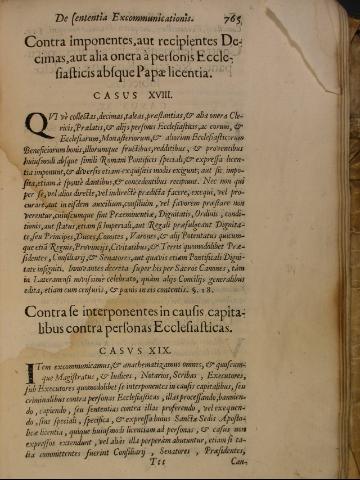 De sententia Excommunicationis. 765
Contra imponentes, aut recipientes De-
cimas, aut alia onera à personis Eccle-
siasticis absque Papæ licentia.
CASUS XVIII.
QVI vè collectas, decimas, taleas, præstantias, & alia onera Cle-
ricis, Prælatis, & alijs personis Ecclesiasticis, ac eorum, &
Ecclesiarum, Monasteriorum, & aliorum Ecclesiasticorum
Beneficiorum bonis, illorumque fructibus, redditibus, & proventibus
huiusmodi absque simili Romani Pontificis speciali, & expressa licen-
tia imponunt, & diversis etiam exquisitis modis exigunt, aut sic impo-
sita, etiam à sponte dantibus, & concedentibus recipiunt. Nec non qui
per se, vel alios directè, vel indirectè prædicta facere, exequi, vel pro-
curare, aut in eisdem auxilium, consilium, vel favorem præstare non
verentur, cuiuscumque sint Præeminentiæ, Dignitatis, Ordinis, condi-
tionis, aut status, etiam si Imperiali, aut Regali præfulgeant Dignita-
te, seu Principes, Duces, Comites, Barones, & alij Potentatus quicum-
que etià Regnis, Provincijs, Civitatibus, & Terris quomodolibet Præ-
sidentes, Consiliarij, & Senatores, aut quavis etiam Pontificali Digni-
tate insigniti. Innovantes decreta super his per Sacros Canones, tàm
in Lateranensi novissimè celebrato, quàm alijs Concilijs generalibus
edita, etiam cum censuris, & pœnis in eis contentis. §. 18.
Contra se interponentes in causis capita-
libus contra personas Ecclesiasticas.
CASVS XIX.
ITem excommunicamus, & anathematizamus omnes, & quoscum-
que Magistratus, & Iudices, Notarios, Scribas, Executores,
sub Executores quomodolibet se interponentes in causis capitalibus, seu
criminalibus contra personas Ecclesiasticas, illas processando, bannien-
do, capiendo, seu sententias contra illas proferendo, vel exequen-
do, sine speciali, specifica, & expressa huius Sanctæ Sedis Aposto-
licæ licentia, quique huiusmodi licentiam ad personas, & casus non
expressos extendunt, vel aliàs illa perperàm abutuntur, etiam si ta-
lia committentes fuerint Consiliarij, Senatores, Præsidentes,
Ttt Can-